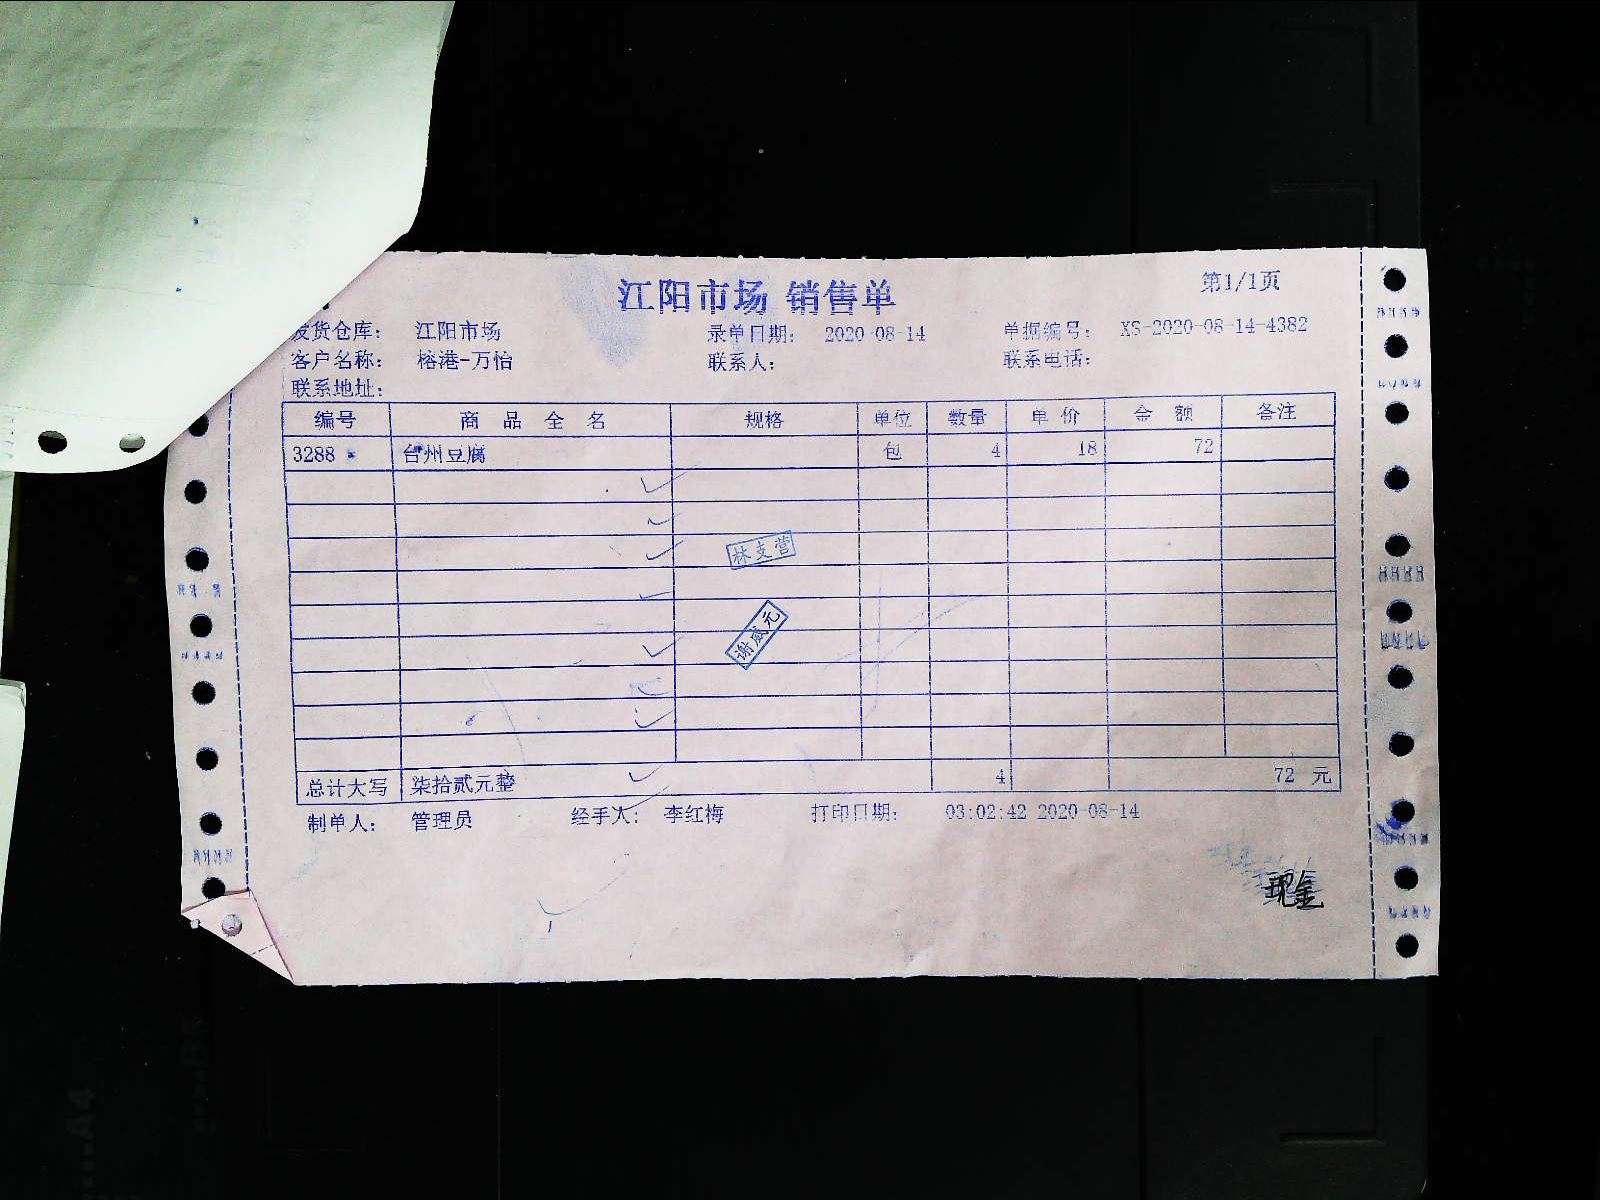 江阳市场 销售单
第1/1页
发货仓库： 江阳市场 录单日期： 2020-08-14 单据编号： XS-2020-08-14-4382
客户名称： 榕港-万怡 联系人： 联系电话：
联系地址：
编号 商品全名 规格 单位 数量 单价 金额 备注
3288 台州豆腐 包 4 18 72
林支营
谢威元
总计大写 柒拾贰元整 4 72 元
制单人： 管理员 经手人： 李红梅 打印日期： 03:02:42 2020-08-14
现金